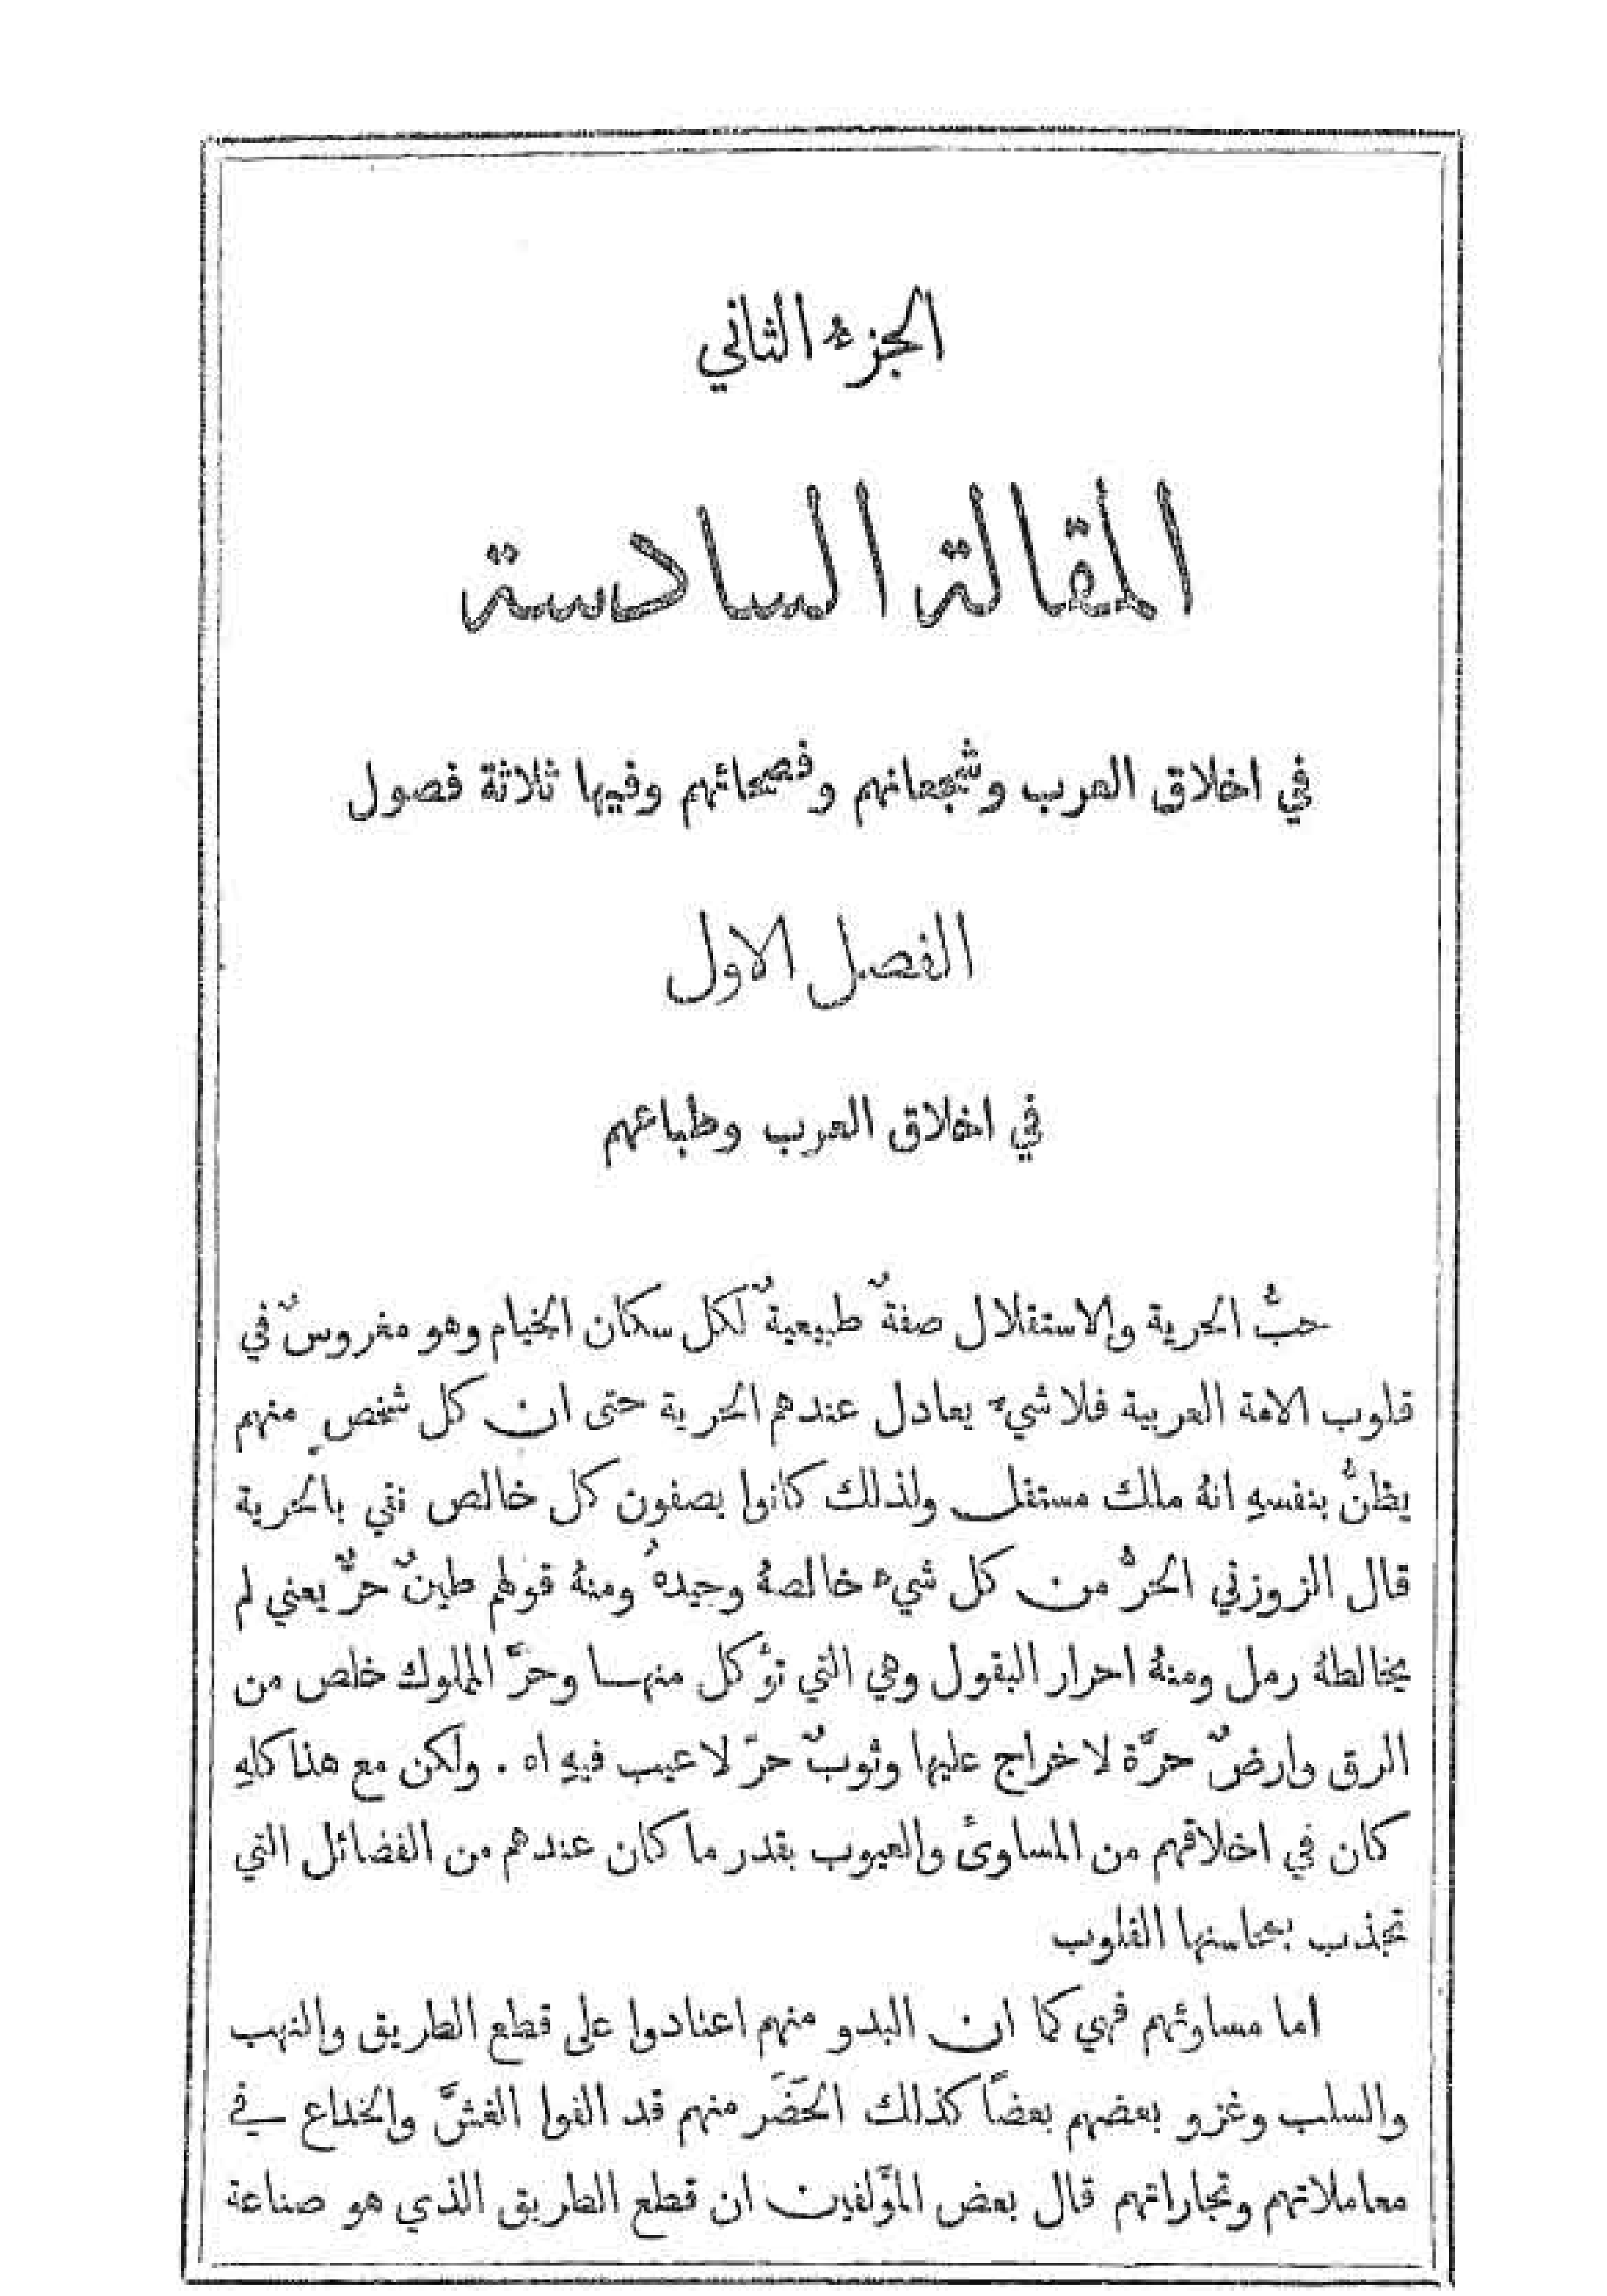 الجزء الثاني
المقالة السادسة
في اخلاق العرب وشجعانهم وفصحائهم وفيها ثلاثة فصول
الفصل الاول
في اخلاق العرب وطبائعهم
حبُّ الحرية والاستقلال صفةٌ طبيعيةٌ لكل سكان الخيام وهو مغروسٌ في
قلوب الامة العربية فلا شيء يعادل عندهم الحرية حتى ان كل شخصٍ منهم
يظنُّ بنفسهِ انهُ مالك مستقل ولذلك كانوا يصفون كل خالص نقي بالحرية
قال الزوزني الحرُّ من كل شيء خالصهُ وجيدهُ ومنهُ قولهم طينٌ حرٌّ يعني لم
يخالطهُ رمل ومنهُ احرار البقول وهي التي تؤكل منها وحرَّ المملوك خلص من
الرق وارضٌ حرَّة لا خراج عليها وثوبٌ حرّ لا عيب فيهِ اه . ولكن مع هذا كلهِ
كان في اخلاقهم من المساوئ والعيوب بقدر ما كان عندهم من الفضائل التي
تجذب بمحاسنها القلوب
اما مساوئهم فهي كما ان البدو منهم اعتادوا على قطع الطريق والنهب
والسلب وغزو بعضهم بعضاً كذلك الحَضَر منهم قد الفوا الغشَّ والخداع في
معاملاتهم وتجاراتهم قال بعض المؤَلفين ان قطع الطريق الذي هو صناعة